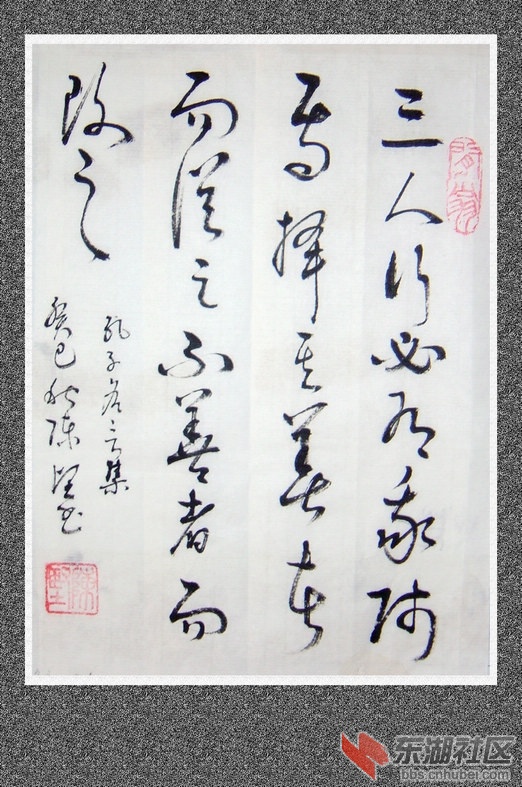 三人行必有我师
焉择其善者
而從之不善者而
改之
孔子名言集
癸巳秋陈坚书
东湖社区
bbs.cnhubei.com